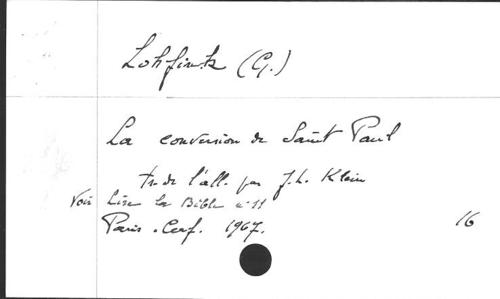 Lohfink (G.)
La conversion de Saint Paul
tr. de l'all. par J.L. Klein
Voir Lire la Bible n° 11
Paris. Cerf. 1967. 16